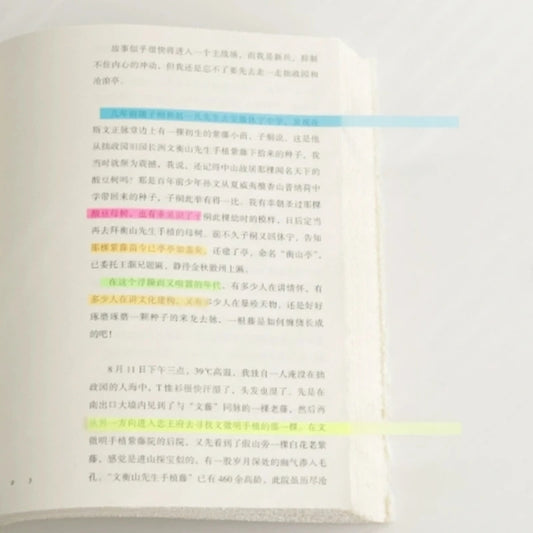 故事似乎很快将进入一个主战场，而我是新兵，抑制
不住内心的冲动，但我还是忘不了要先去走一走拙政园和
沧浪亭。
斯文正脉章边上有一棵初生的紫藤小苗，子桐说，这是他
从拙政园旧园长洲文衡山先生手植紫藤下拾来的种子，我
当时就颇为震撼，我说，还记得中山故居那棵闻名天下的
酸豆树吗？那是百年前少年孙文从夏威夷檀香山普纳荷中
学带回来的种子，子桐此举有得一比。我有幸朝圣过那棵
酸豆母树，也有幸见识了子桐此棵幼时的模样，日后定当
再去拜衡山先生手植的母树。前不久子桐又回休宁，告知
那棵紫藤苗今已亭亭如盖矣，还建了亭，命名“衡山亭”，
已委托王灏兄题匾，静待金秋徽州上匾。
在这个浮躁而又喧嚣的年代，有多少人在讲情怀，有
多少人在讲文化建构，又有多少人在暴殄天物，还是好好
琢磨琢磨一颗种子的来龙去脉，一根藤是如何缠绕长成
的吧！
8月11日下午三点，39℃高温，我独自一人淹没在拙
政园的人海中，T恤衫很快汗湿了，头发也湿了。先是在
南出口大墙内见到了与“文藤”同脉的一棵老藤，然后再
从另一方向进入忠王府去寻找文徵明手植的那一棵。在文
徵明手植紫藤院的后院，又先看到了假山旁一棵白花老紫
藤，感觉是进山探宝似的，有一股岁月深处的幽气渗入毛
孔，“文衡山先生手植藤”已有460余高龄，此院虽历尽沧